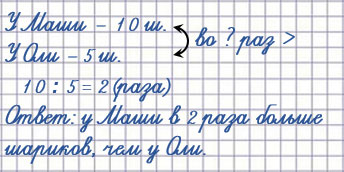 У Маши – 10 ш.
во ? раз >
У Оли – 5 ш.
10 : 5 = 2 (раза)
Ответ: у Маши в 2 раза больше
шариков, чем у Оли.